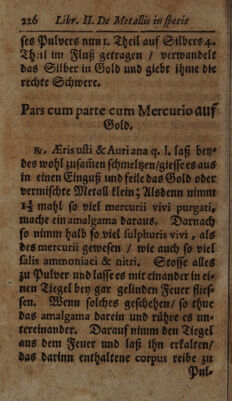 226 Libr. II. De Metallis in specie
ses Pulvers nun 1. Theil auf Silbers 4.
Theil im Fluß getragen / verwandelt
das Silber in Gold und giebt ihme die
rechte Schwere.
Pars cum parte cum Mercurio auf
Gold.
℞. Æris usti & Auri ana q. l. laß bey-
des wohl zusam̃en schmeltzen/giesse es aus
in einen Einguß und feile das Gold oder
vermischte Metall klein; Alsdenn nimm
1½ mahl so viel mercurii vivi purgati,
mache ein amalgama daraus. Darnach
so nimm halb so viel sulphuris vivi, als
des mercurii gewesen / wie auch so viel
salis ammoniaci & nitri. Stosse alles
zu Pulver und lasse es mit einander in ei-
nen Tiegel bey gar gelinden Feuer flies-
sen. Wenn solches geschehen / so thue
das amalgama darein und rühre es un-
tereinander. Darauf nimm den Tiegel
aus dem Feuer und laß ihn erkalten/
das darinn enthaltene corpus reibe zu
Pul-